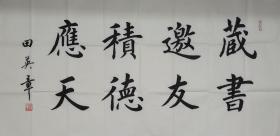 藏書
邀友
積德
應天
田英章